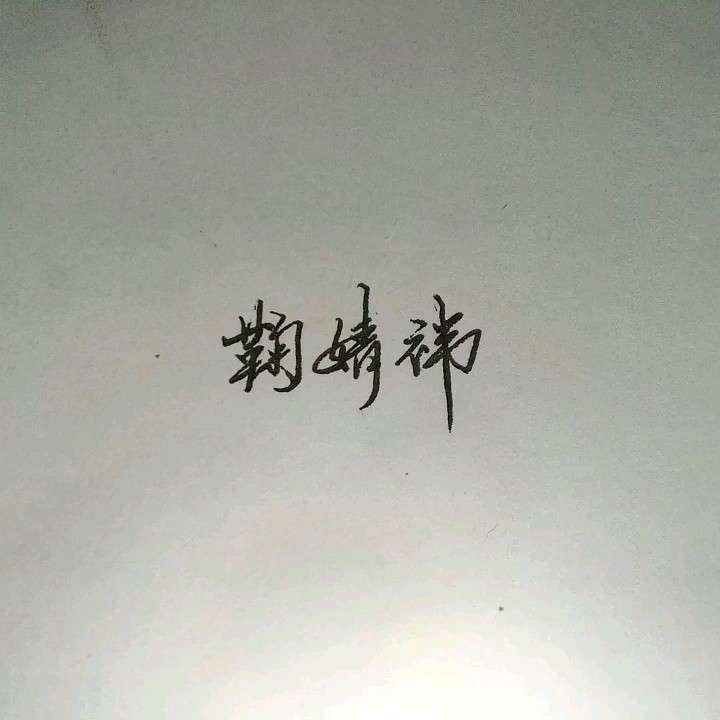 鞠婧祎